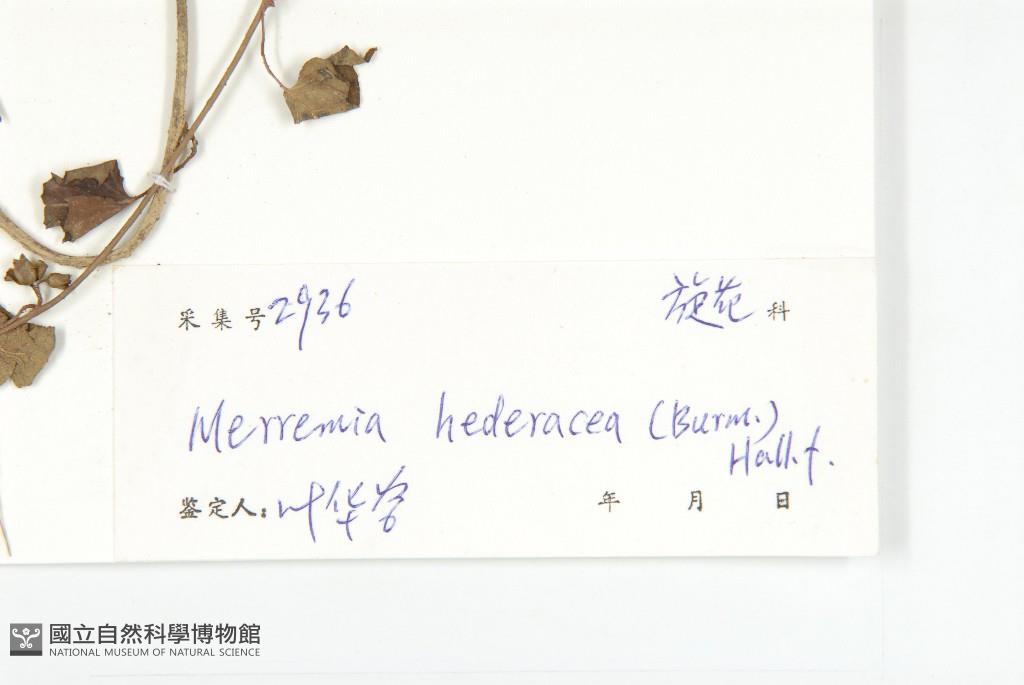 采集号 2936 旋花 科
Merremia hederacea (Burm.)
Hall. f.
鉴定人: 叶华谷 年 月 日
國立自然科學博物館
NATIONAL MUSEUM OF NATURAL SCIENCE